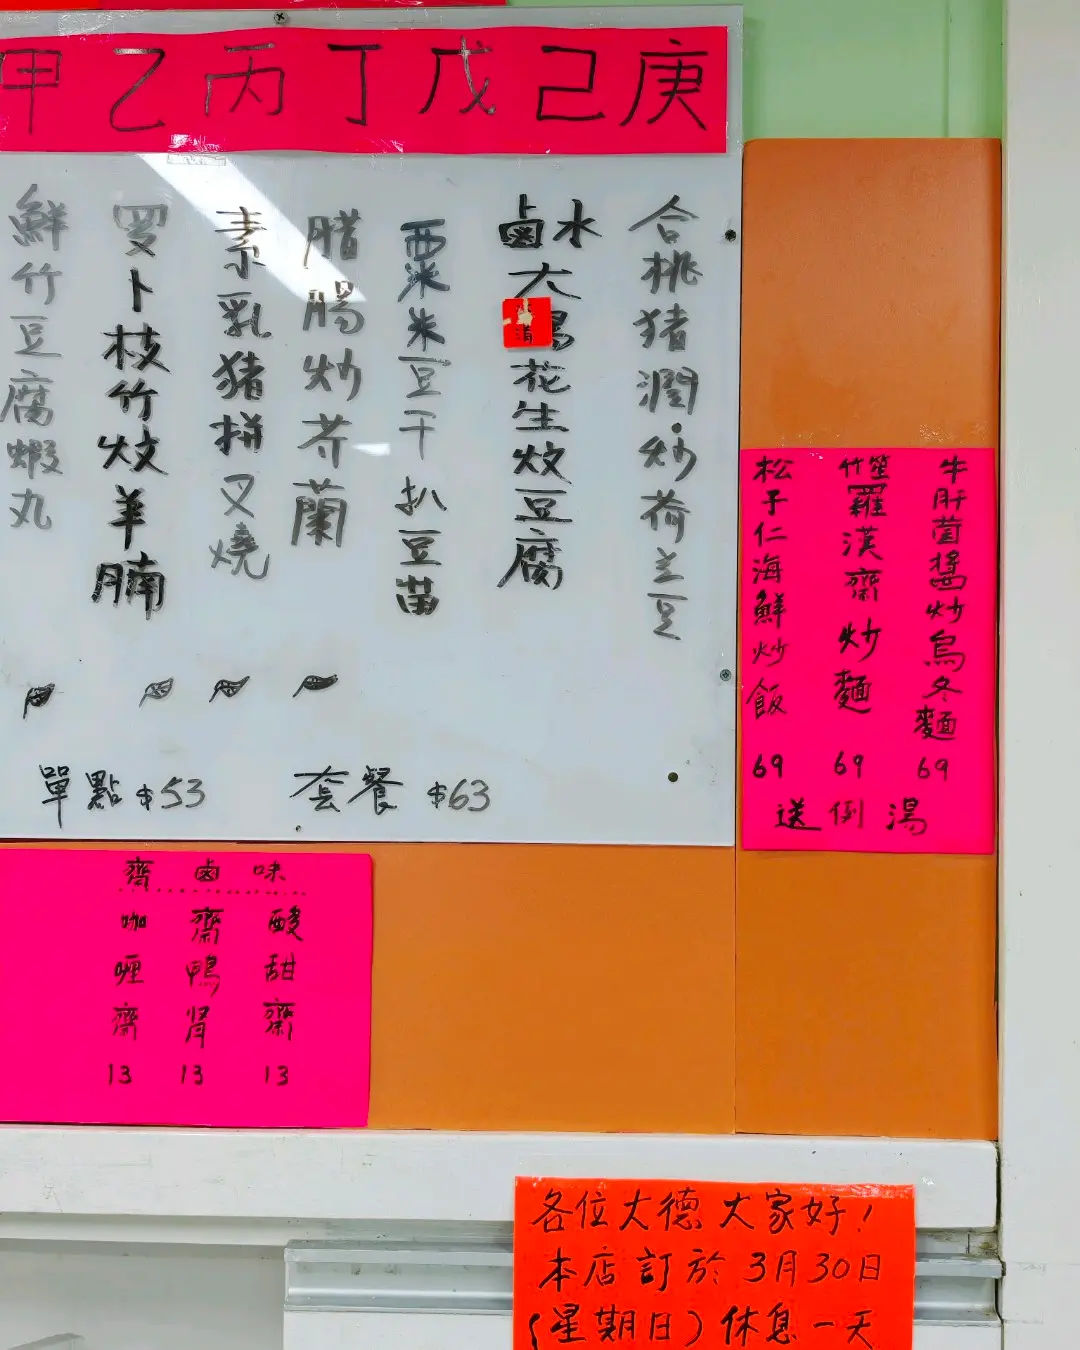 甲乙丙丁戊己庚
鮮竹豆腐蝦丸
罗卜枝竹炆羊腩
素乳豬拼叉燒
腊腸炒芥蘭
粟米豆干扒豆苗
鹵水
大腸花生炆豆腐
合桃猪潤炒荷兰豆
單點$53
套餐$63
松子仁海鮮炒飯
69
竹笙羅漢齋炒麵
69
牛肝菌醬炒烏冬麵
69
送例湯
齋鹵味
咖喱齋
13
齋鴨腎
13
酸甜齋
13
各位大德大家好!
本店訂於3月30日
(星期日)休息一天